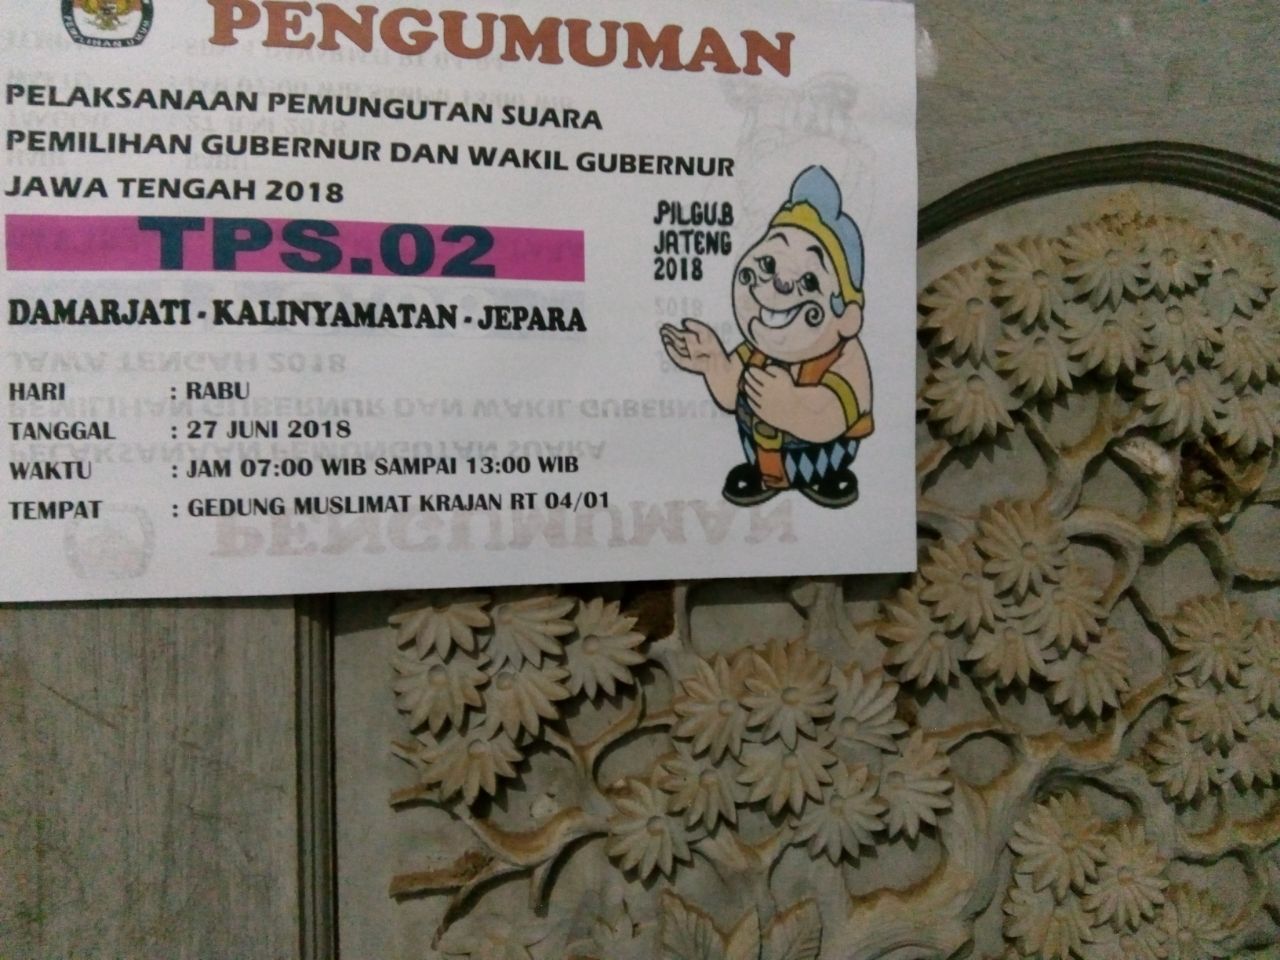 PEMILIHAN UMUM
PENGUMUMAN
PELAKSANAAN PEMUNGUTAN SUARA
PEMILIHAN GUBERNUR DAN WAKIL GUBERNUR
JAWA TENGAH 2018
TPS.02
DAMARJATI - KALINYAMATAN - JEPARA
PILGUB
JATENG
2018
HARI : RABU
TANGGAL : 27 JUNI 2018
WAKTU : JAM 07:00 WIB SAMPAI 13:00 WIB
TEMPAT : GEDUNG MUSLIMAT KRAJAN RT 04/01